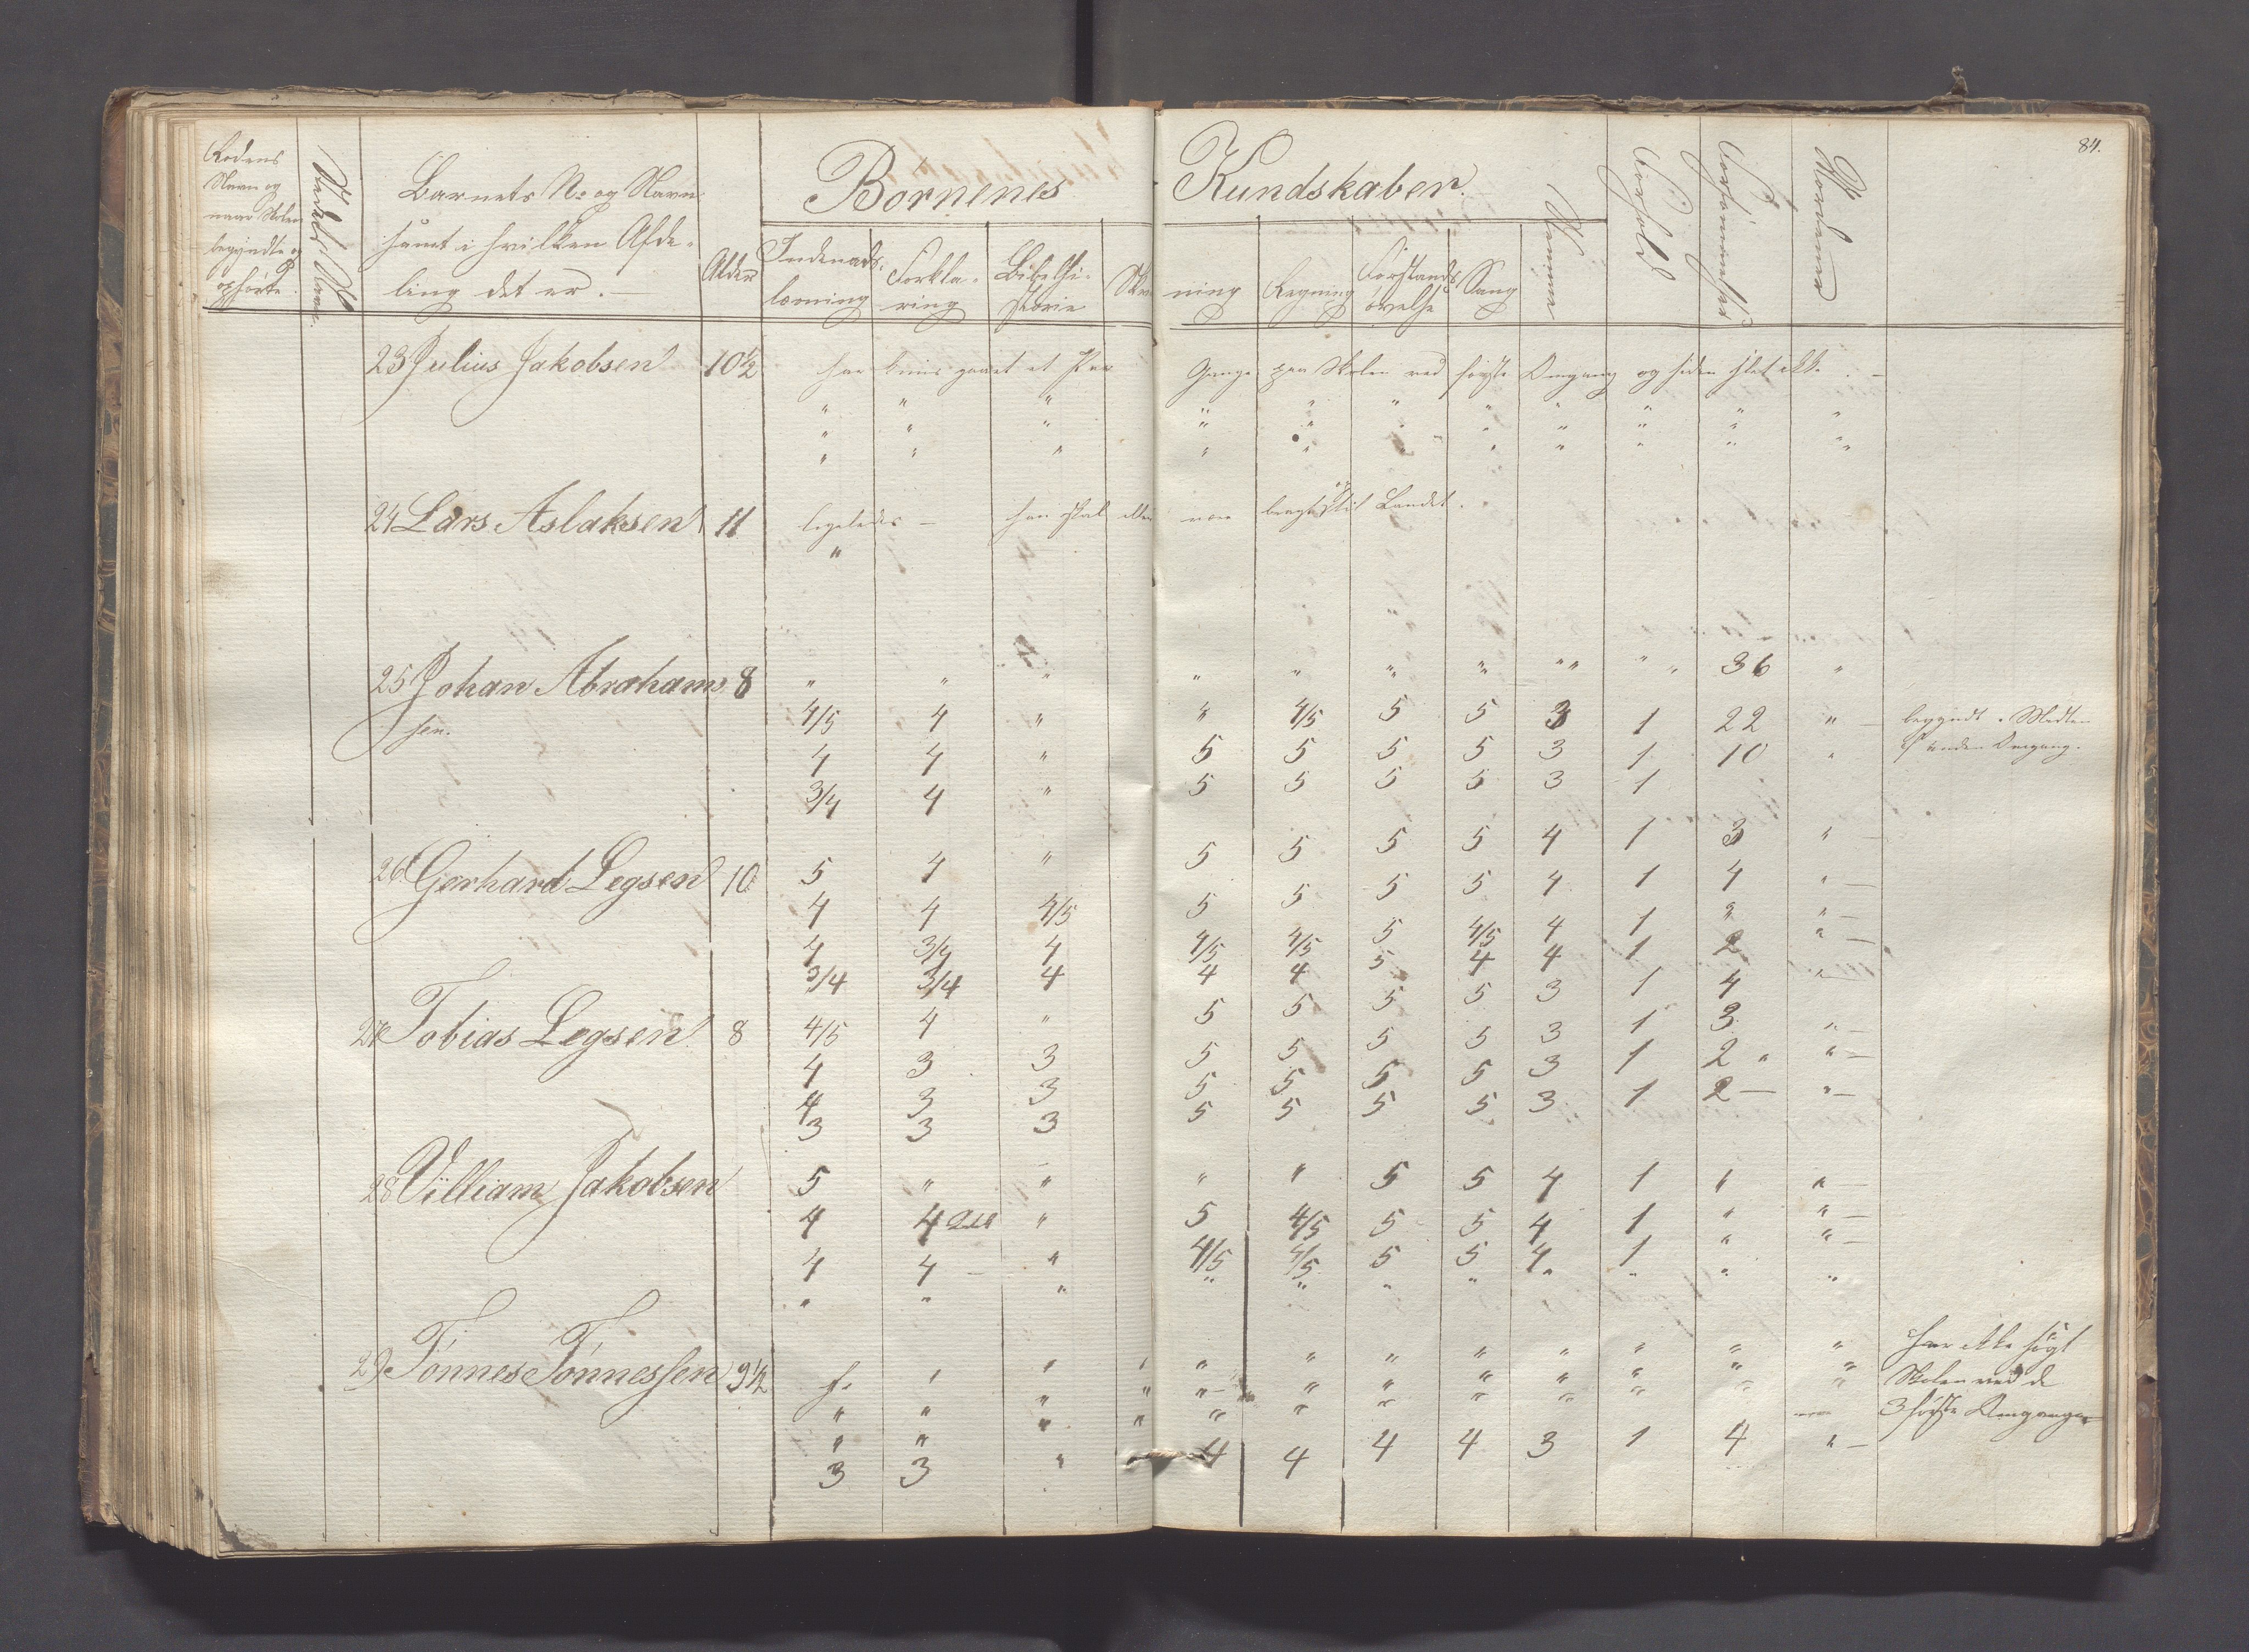 84.
Rodens
Navn og
naar Skolen
begyndte og
ophørte.
Barnets No og Navn
samt i hvilken Afde-
ling det er.
Alder
Børnenes Kundskaber.
Indenads-
læsning
Forkla-
ring
Bibelhi-
storie
Skrivning
Regning
Forstands
øvelse
Sang
Nemme
Forhold
Forsømmelser
23 Julius Jakobsen 10½ har kuns gaaet et Par Gange paa Skolen ved første Omgang og siden slet ikke. -
" " " " " " " " " " "
" " " " " " " " " " "
" " " " " " " " " " "
24 Lars Aslaksen 11 ligeledes - han skal være bragt til Landet.
"
25 Johan Abraham- 8 " " " " " " " " " " 36 "
sen. 4/5 4 " " 4/5 5 5 3 1 22 " - begyndt i Midten
4 4 " 5 5 5 5 3 1 10 " af anden Omgang.
3/4 4 " 5 5 5 5 3 1
26 Gerhard Legsen 10 5 4 " 5 5 5 5 4 1 3 " -
4 4 4/5 5 5 5 5 4 1 4 " -
4 3/4 4 4/5 4/5 5 4/5 4 1 " " -
3/4 3/4 4 4 4 5 4 4 1 2 " -
27 Tobias Legsen 8 4/5 4 " 5 5 5 5 3 1 4 "
4 3 3 5 5 5 5 3 1 3 " -
4 3 3 5 5 5 5 3 1 2 " " -
3 3 3 5 5 5 5 3 1 2 - " -
28 Villiam Jakobsen 5 " " " " 5 5 4 1 " " -
4 4 " 5 4/5 5 5 4 1 " " -
4 4 - " 4/5 4/5 5 5 4 1 " " -
" " " " " " " " " " "
29 Tønnes Tønnessen 9½ " " " " " " " " " " " har ikke søgt
" " " " " " " " " " " " Skolen ved de
" " " " " " " " " " 3 første Omgange
3 3 " " 4 4 4 4 3 1 4 " -